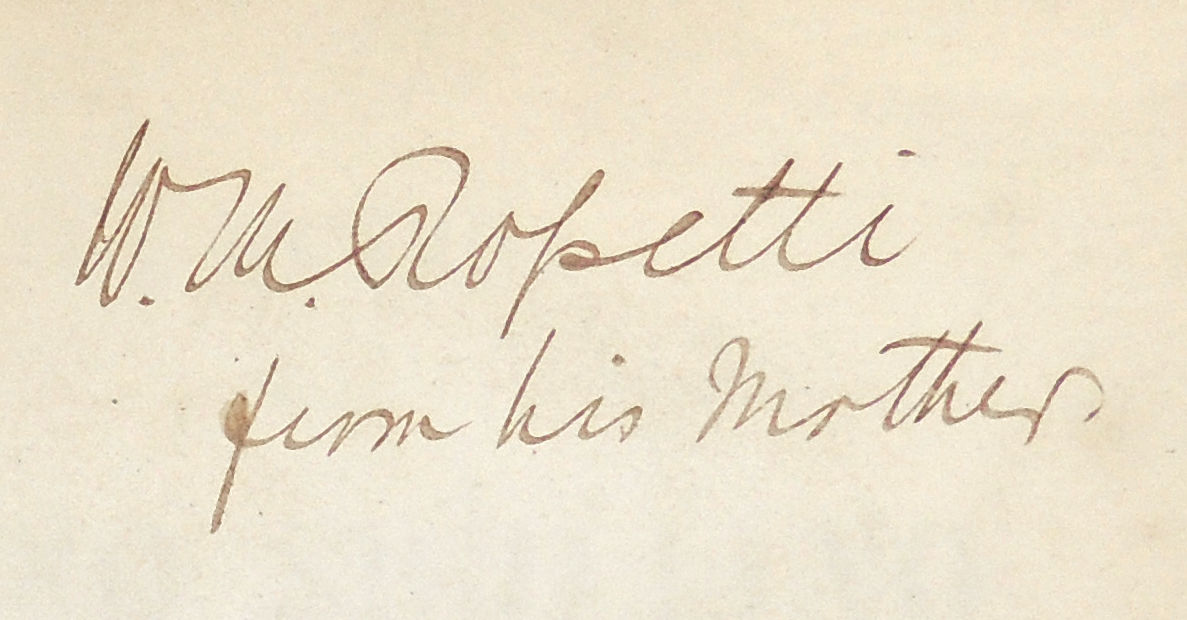 W. M. Roſsetti
from his Mother